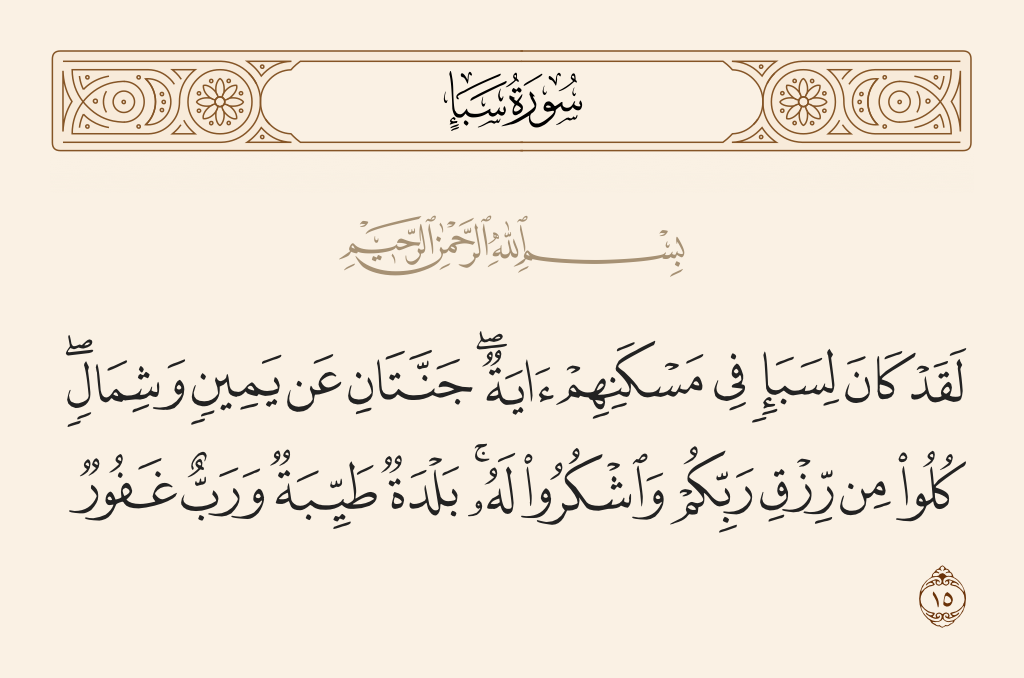 سُورَةُ سَبَإٍ
بِسْمِ ٱللَّهِ ٱلرَّحْمَٰنِ ٱلرَّحِيمِ
لَقَدْ كَانَ لِسَبَإٍ فِى مَسْكَنِهِمْ ءَايَةٌ ۖ جَنَّتَانِ عَن يَمِينٍ وَشِمَالٍ ۖ
كُلُوا۟ مِن رِّزْقِ رَبِّكُمْ وَٱشْكُرُوا۟ لَهُۥ ۚ بَلْدَةٌ طَيِّبَةٌ وَرَبٌّ غَفُورٌ
١٥